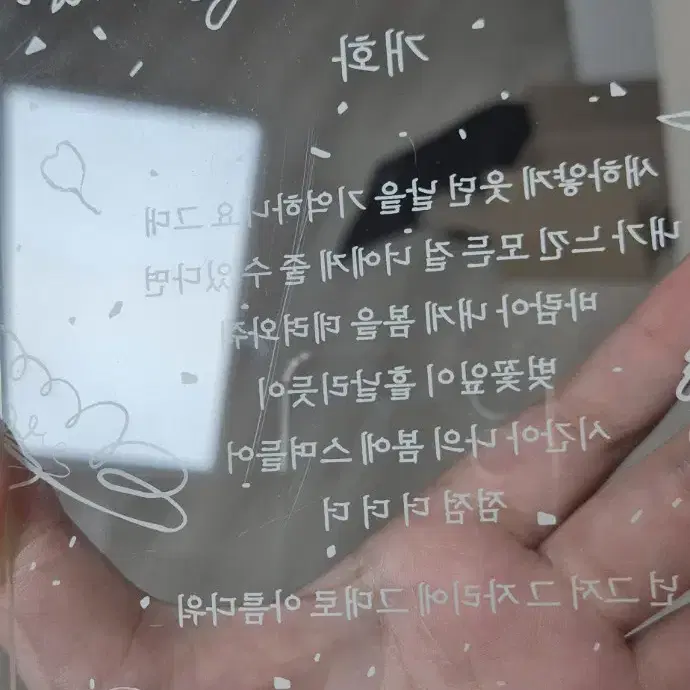 개화
새하얗게 웃던 날을 기억하나요 그대
내가 느낀 모든 걸 너에게 줄 수 있다면
바람아 내게 봄을 데려와줘
벚꽃잎이 흩날리듯이
시간아 나의 봄에 스며들어
점점 더 더 더
넌 그저 그 자리에 그대로 아름다워